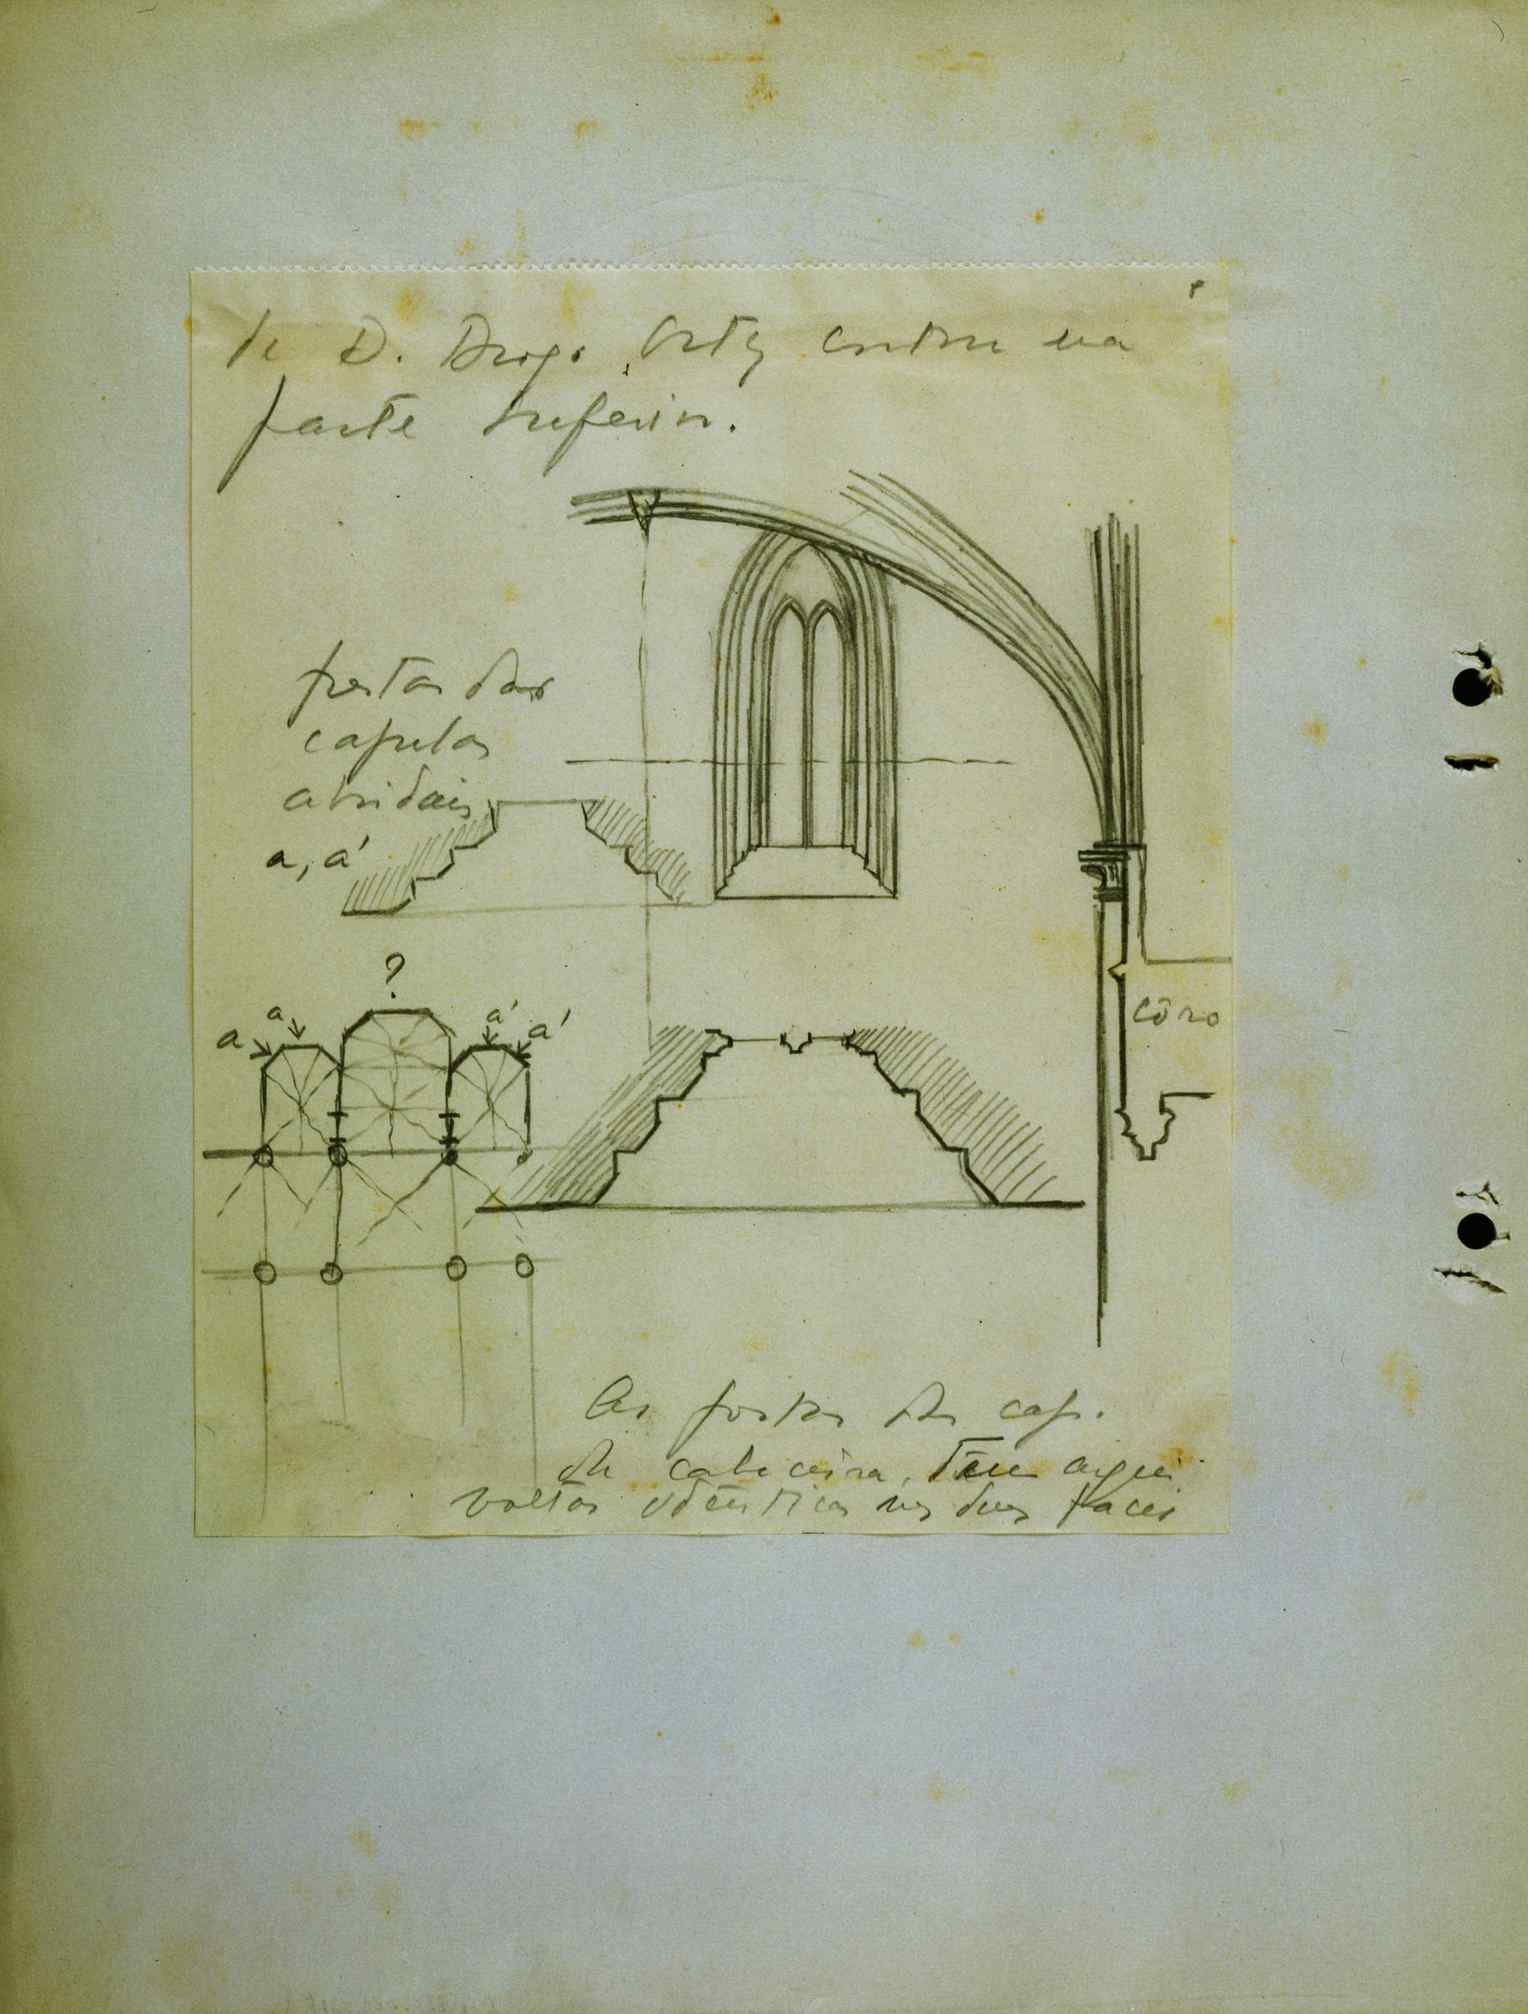 de D. Diogo Ortiz contem na
parte inferior.
frestas das
capelas
absidais
a, a'
?
a
a'
a
a'
côro
As frestas das cap.
da cabeceira, têem aqui
voltas idênticas nas duas faces